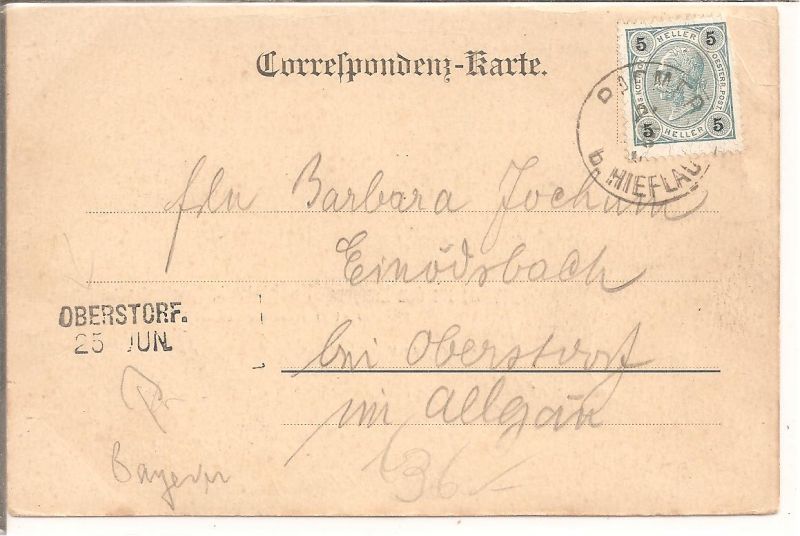 Correspondenz-Karte.
5 HELLER 5
5 HELLER 5
OESTERR. POST.
b. HIEFLAU
frln Barbara Jochum
Einödsbach
bei Oberstdorf
im Allgäu
OBERSTORF.
25 JUN.
Bayern
36/-